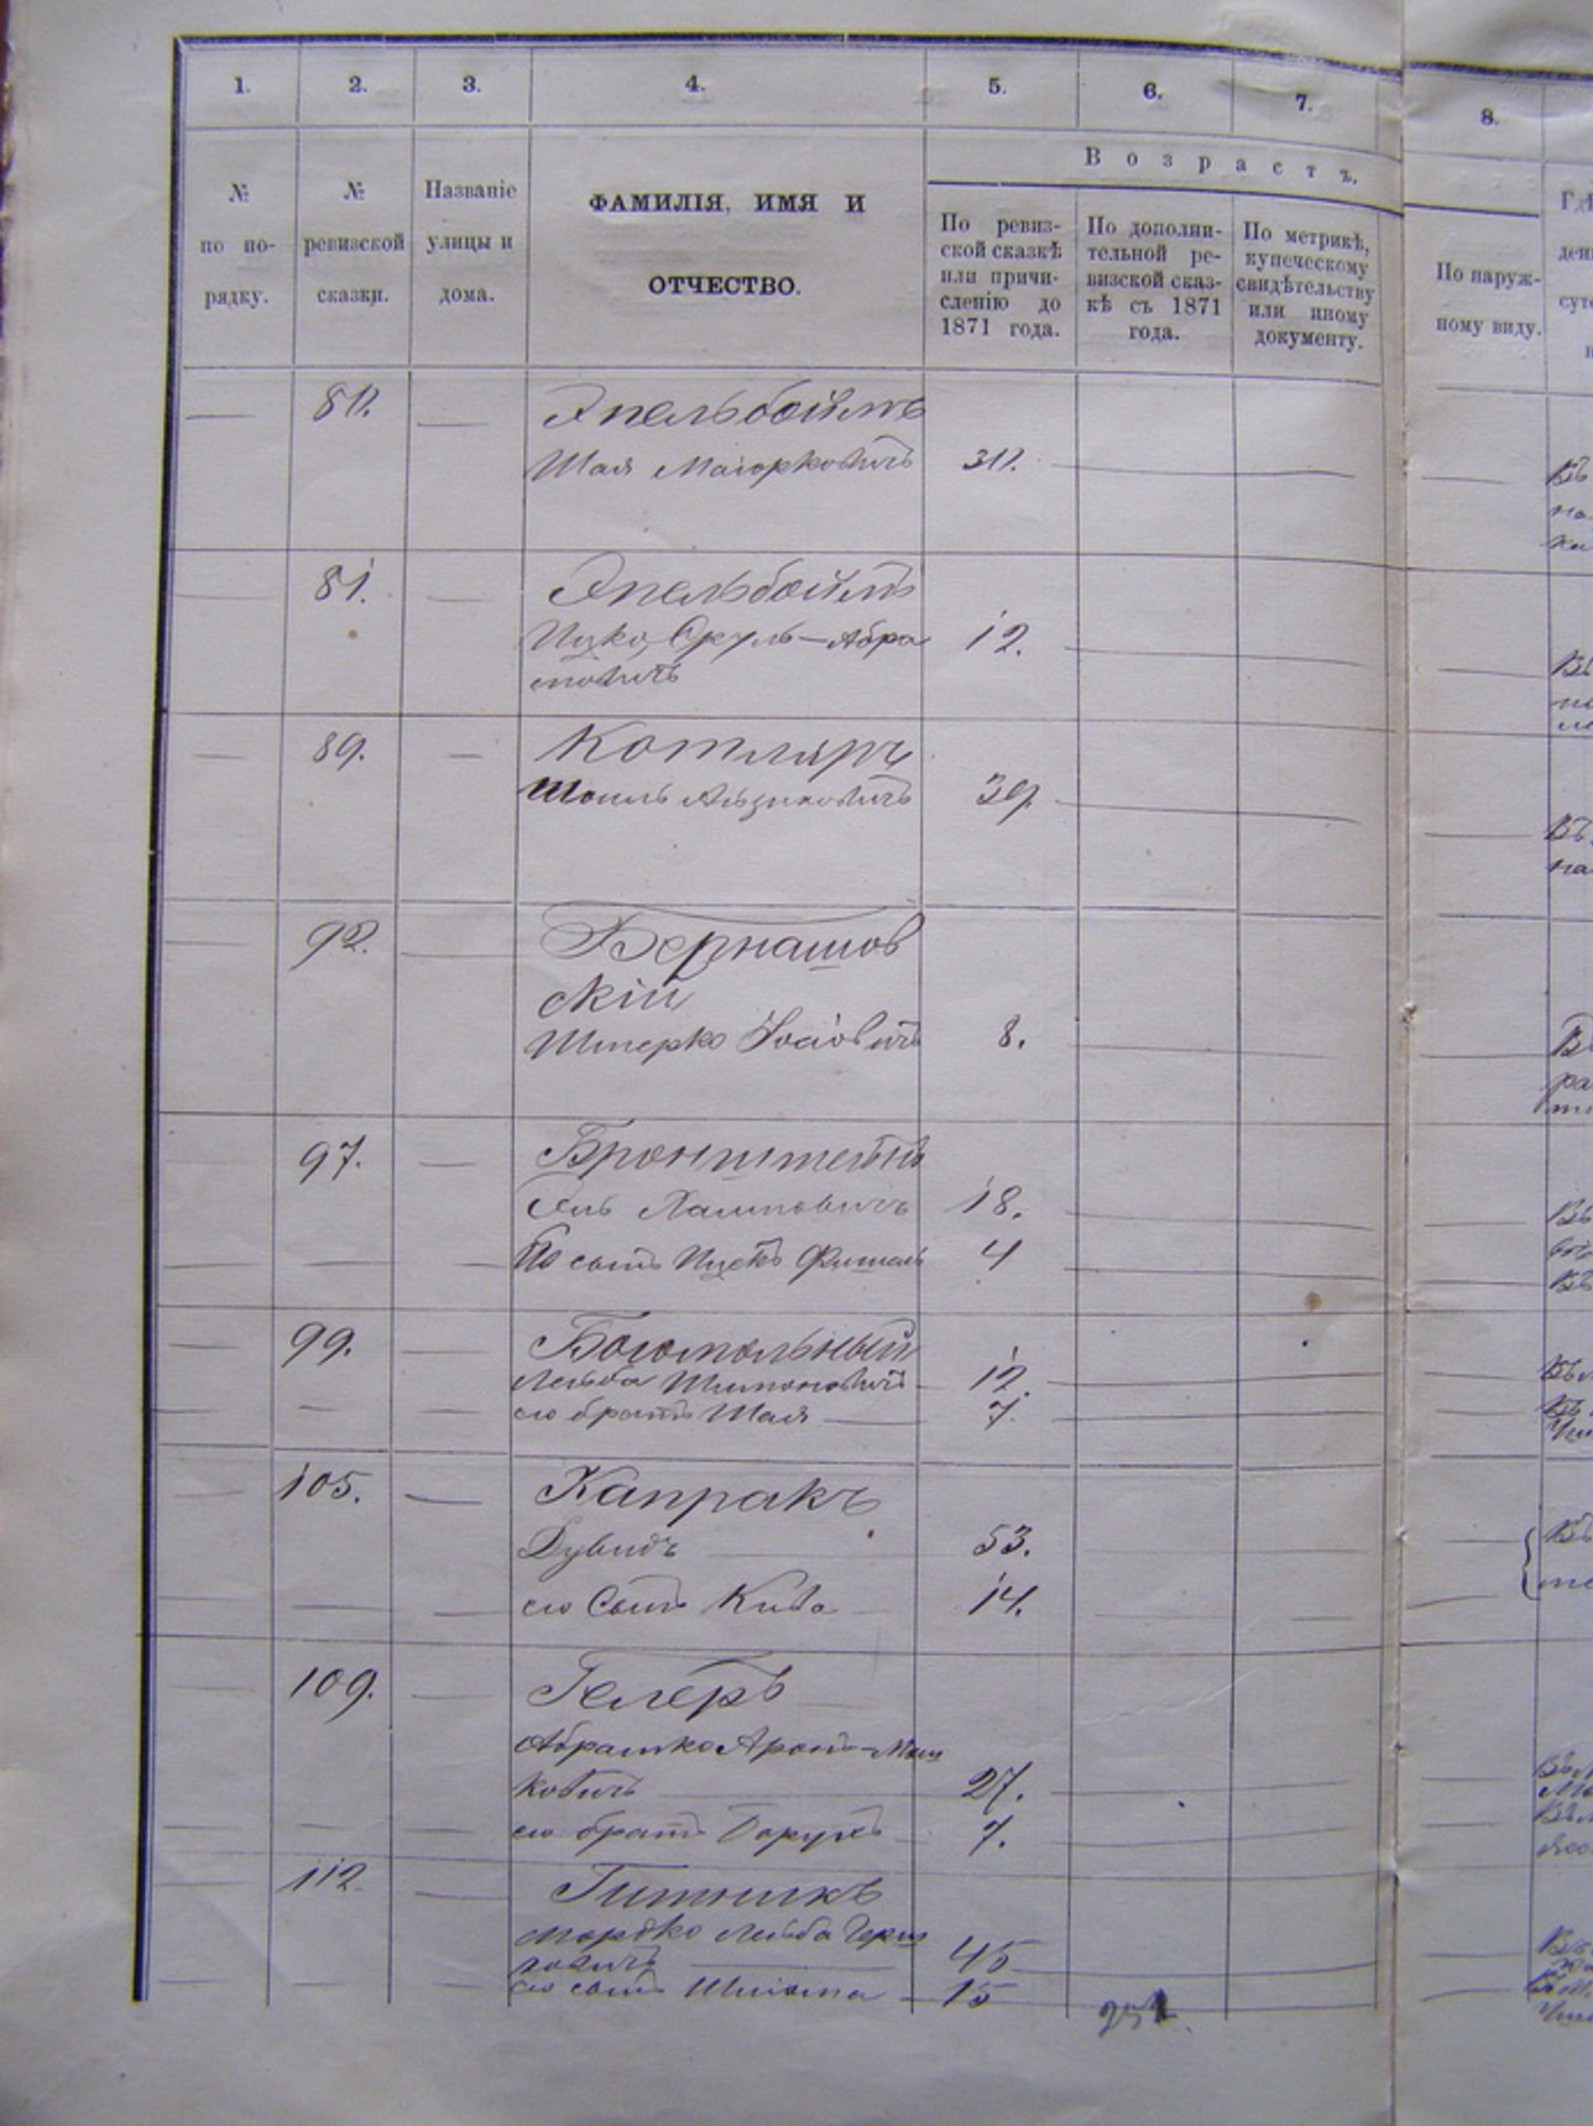 1. 2. 3. 4. 5. 6. 7. 8.
Возрастъ.
№ по по-рядку.
№ ревизской сказки.
Названіе улицы и дома.
ФАМИЛІЯ, ИМЯ И
ОТЧЕСТВО.
По ревиз-
ской сказкѣ
или причи-
сленію до
1871 года.
По дополни-
тельной ре-
визской сказ-
кѣ съ 1871
года.
По метрикѣ,
купеческому
свидѣтельству
или иному
документу.
По наруж-
ному виду.
80. Эпельбоймъ
Шая Маіорковичъ 30.
81. Эпельбоймъ
Ицко Сруль-Абра 12.
мовичъ
89. Котляръ
Шоиль Айзиковичъ 39
92. Бернашов
скій
Шмерко Іосіовичъ 8.
97. Бронштейнъ
Хаимовичъ 18.
сынъ Ицекъ Фишель 4
99. Богомольный
Лейба Шимоновичъ 12.
его братъ Шая 7.
105. Капракъ
Дувидъ 53.
его Сынъ Кива 14.
109. Гелеръ
Абрашко Аронъ-Мош
ковичъ 27.
его братъ Борухъ 7.
112. Гитникъ
Мордко Лейба Герш
ковичъ 45
его сынъ Шліома 15